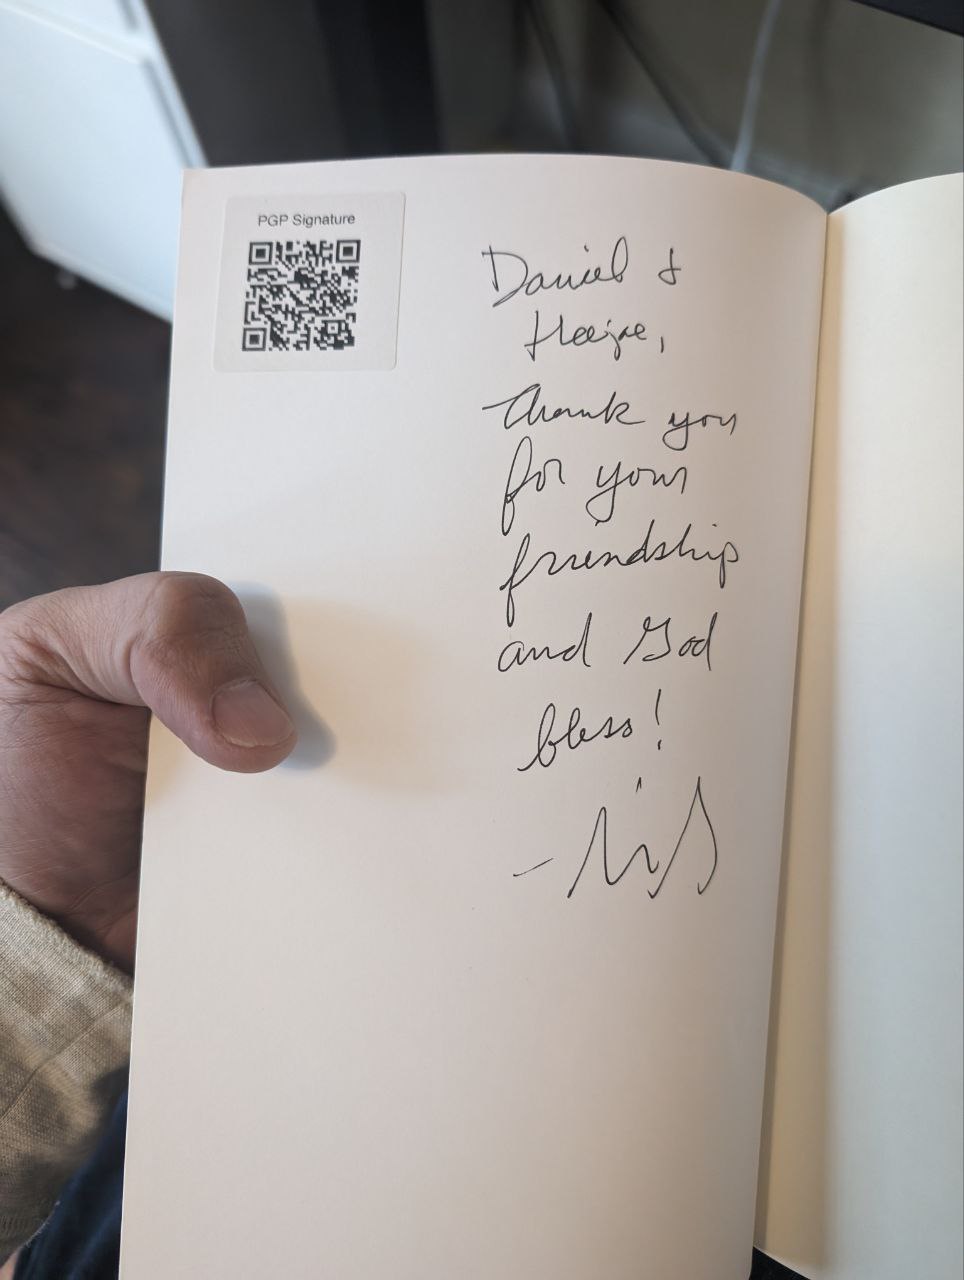 PGP Signature
Daniel &
thank you
for your
friendship
and God
bless!